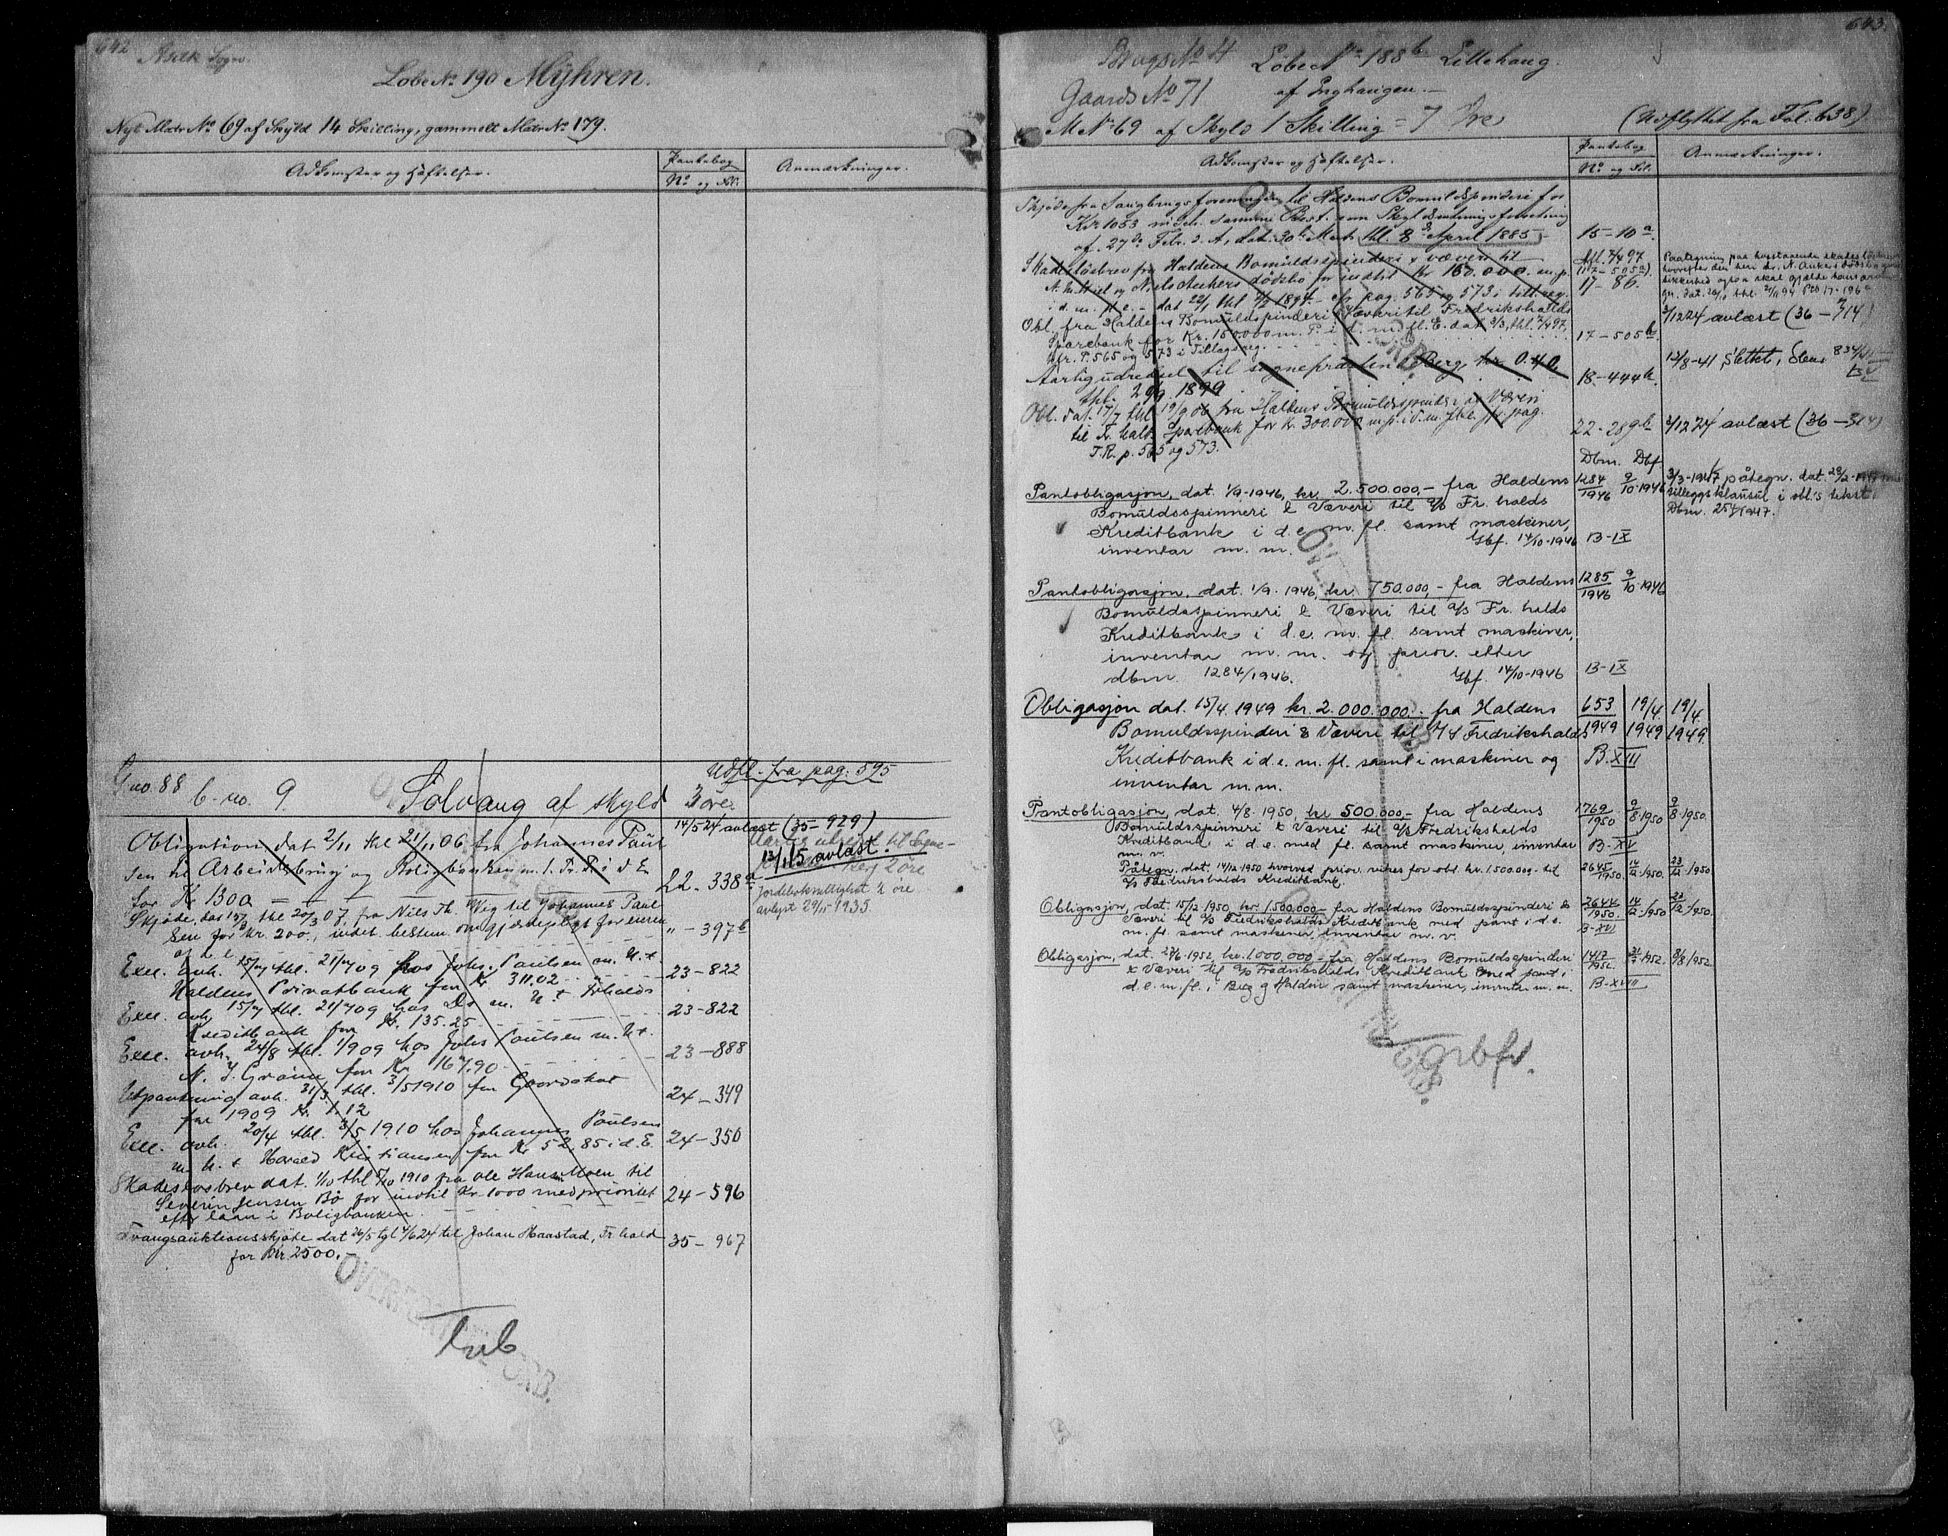 642
Asak Sogn.
Løbe No 190 Myhren.
Nyt Matr No 69 af Skyld 14 Skilling, gammelt Matr No 179.
Adkomster og Hæftelser.
Pantebog
No og Fol.
Anmærkninger.
Udfl. fra pag. 595
G no. 88 b. no. 9. Solvang af skyld 3 öre.
14/5 24 avlæst (35-929)
Obligation dat 2/11 thl 21/11 06 fra Johannes Paul
sen til Arbeiderbrug og Boligbanken m. 1. Pr. P. i d E
for Kr 1300 22-338a
13/1 15 avlæst
2 öre
Jordebokrettighet 2 øre
avlyst 29/11-1935
Skjøde, dat 15/3 thl 20/3 07, fra Nils Th. Wig til Johannes Paul
sen for kr 200., indet. bestem. om gjerdepligt for eieren
af d. e. " - 397b
Exec. avh. 15/7 thl. 21/7 09 hos Johs. Paulsen m. U. t.
Haldens Privatbank for Kr. 311.02 23-822
Exec. avh 15/7 thl. 21/7 09 hos Do m. U. t. Frhalds
Kreditbank for Kr. 135.25 23-822
Exec. avh. 24/8 thl. 1/9 09 hos Johs Paulsen m. U. t.
N. J. Grønn for Kr 167.90 23-888
Utpantning avh. 31/3 thl. 3/5 1910 for Gaardskat
for 1909 Kr 1,12 24-349
Exec. avh. 20/4 thl. 3/5 1910 hos Johannes Paulsen
m. U. t. Harald Kristiansen for Kr 52,85 i d. E. 24-350
Skadesløsbrev dat. 1/10 thl 5/10 1910 fra Ole Hansen Moen til
Severin Jensen Bø for indtil Kr. 1000 med prioritet
efter laan i Boligbanken 24-596
Tvangsauktionsskjøte dat 26/5 tgl 4/6 24 til Johan Haastad, Fr.hald
for Kr 2500,- 35-967
OVERFØRT
643.
Brugs No 4 Løbe No 188b Lillehaug.
Gaards No 71 af Enghaugen.
M No 69 af Skyld 1 Skilling = 7 Øre (Udflyttet fra Fol: 638)
Adkomster og Hæftelser.
Pantebog
No og Fol.
Anmærkninger.
Skjøde fra Saugbrugsforeningen til Haldens Bomuldspinderi for
Kr 1053 med samme Best. som Skyldsætningsforretning
af 27de Febr. d. A., dat. 30te Marts thl. 8de April 1885 15-10a
Skadesløsbrev fra Haldens Bomuldsspinderi & væveri til
N. Wiel og Niels Ankers dødsbo for indtil Kr 160.000 m. p.
i d. m. fl. e. - dat 22/1 thl 1894 - cfr pag. 565 og 573 i till. reg. 17-86.
3/12 24 avlæst (36-314)
Obl. fra Haldens Bomuldspinderi & Væveri til Fredrikshalds
Sparebank for Kr. 150.000 m. P. i d. m. fl. E. dat 2/3, thl. 7/4 97,
cfr. P. 565 og 573 i Tillægsreg. 17-505b
Aarlig udredsel til sognepræsten i Berg, kr 0.40
thl. 29/9 1899 18-444b.
13/8-41 slettet,
Obl. dat. 17/7 thl 19/9 06 fra Haldens Bomuldspinderi & Væveri
til Fr.halds sparebank for Kr. 300.000 m. p. i d. m. fl. e. jfr. pag.
T. R. p. 565 og 573. 22-289b 3/12 24 avlæst (36-314)
Dbm. Dbf
Pantobligasjon, dat. 1/9-1946, kr. 2.500.000,- fra Haldens 1284/1946 9/10-1946
Bomuldsspinneri & Væveri til A/S Fr.halds
Kreditbank i d. e. m. fl. samt maskiner,
inventar m. m. Gbf. 14/10-1946 B-IX
3/3-1947 påtegn. dat. 28/2-1947
tilleggsklausul i obl.s tekst.
Dbm. 254/1947.
Pantobligasjon, dat. 1/9. 1946, kr. 750.000,- fra Haldens 1285/1946 9/10-1946
Bomuldsspinneri & Væveri til A/S Fr.halds
Kreditbank i d. e. m. fl. samt maskiner,
inventar m. m. og prior. etter
dbm. 1284/1946. Gbf. 14/10-1946 B-IX
Obligasjon dat. 15/4 1949 kr. 2.000.000,- fra Haldens 653/1949 19/4 1949 19/4 1949.
Bomuldsspinderi & Væveri til A/S Fredrikshalds
Kreditbank i d. e. m. fl. samt i maskiner og B-XIII
inventar m. m.
Pantobligasjon, dat. 4/8. 1950, kr 500.000,- fra Haldens 1769/1950 9/8-1950 9/8-1950.
Bomuldsspinneri & Væveri til A/S Fredrikshalds
Kreditbank i d. e. med fl. samt maskiner, inventar B-XV
m. v.
Påtegn. dat. 14/12 1950 hvorved prior. vikes for obl. kr. 1.500.000.- til 2645/1950 14/12 1950. 22/12 1950.
A/S Fredrikshalds Kreditbank.
Obligasjon, dat. 15/12 1950, kr. 1.500.000,- fra Haldens Bomuldsspinderi & 2644/1950. 14/12 1950 22/12 1950.
Væveri til A/S Fredrikshalds Kreditbank med pant i d. e.
m. fl. samt maskiner, inventar m. v. B-XV
Obligasjon, dat. 28/6 1952, kr. 1.000.000,- fra Haldens Bomuldsspinderi 1417/1952. 1952. 8/8 1952
& Væveri til A/S Fredrikshalds Kreditbank med pant i
d. e. m. fl. i Berg og Halden samt maskiner, inventar m. m. B-XVIII